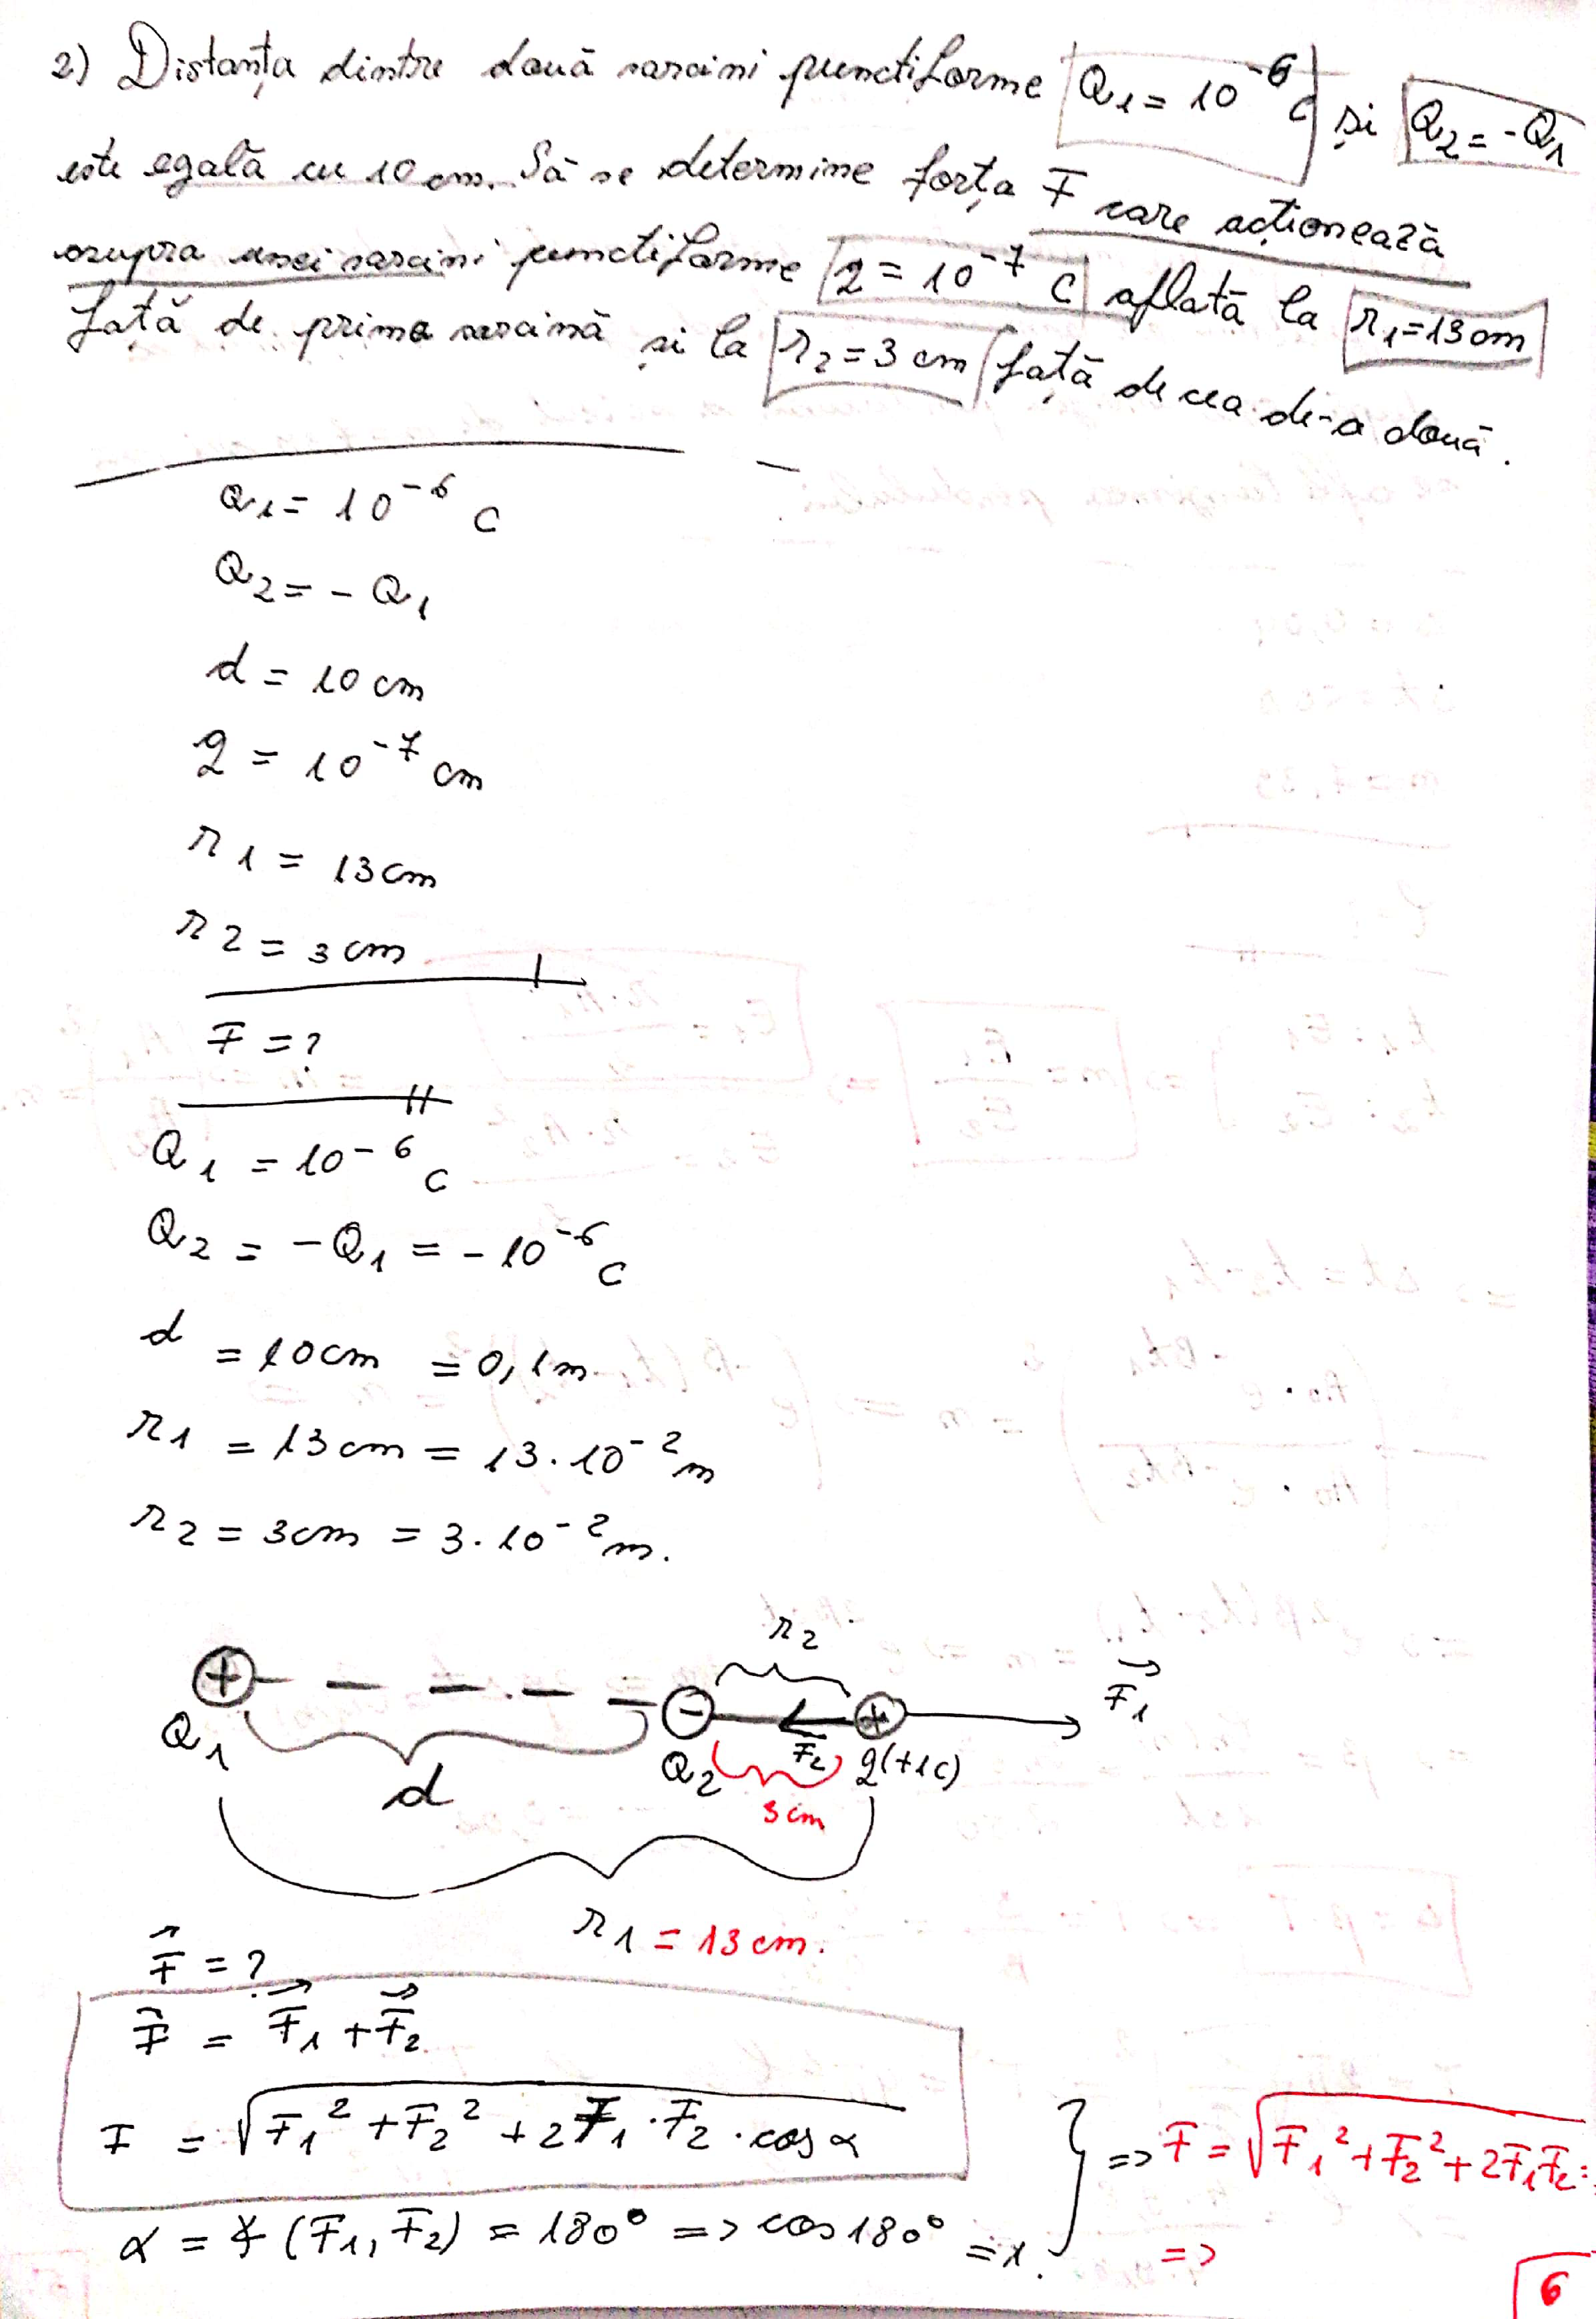 2) Distanța dintre două sarcini punctiforme Q₁ = 10⁻⁶ C și Q₂ = -Q₁
este egală cu 10 cm. Să se determine forța F care acționează
asupra unei sarcini punctiforme q = 10⁻⁷ C aflată la r₁ = 13 cm
față de prima sarcină și la r₂ = 3 cm față de cea de-a doua.
Q₁ = 10⁻⁶ C
Q₂ = - Q₁
d = 10 cm
q = 10⁻⁷ cm
r₁ = 13 cm
r₂ = 3 cm
F = ?
Q₁ = 10⁻⁶ C
Q₂ = -Q₁ = -10⁻⁶ C
d = 10 cm = 0,1 m
r₁ = 13 cm = 13 · 10⁻² m
r₂ = 3 cm = 3 · 10⁻² m.
r₂
+ - + F⃗₁
Q₁ d Q₂ F₂ q(+1C)
3 cm
r₁ = 13 cm.
F⃗ = ?
F⃗ = F⃗₁ + F⃗₂
F = √(F₁² + F₂² + 2F₁ · F₂ · cos α) } => F = √(F₁² + F₂² + 2F₁F₂ =
α = ∢ (F₁, F₂) = 180° => cos 180° = 1. =>
6